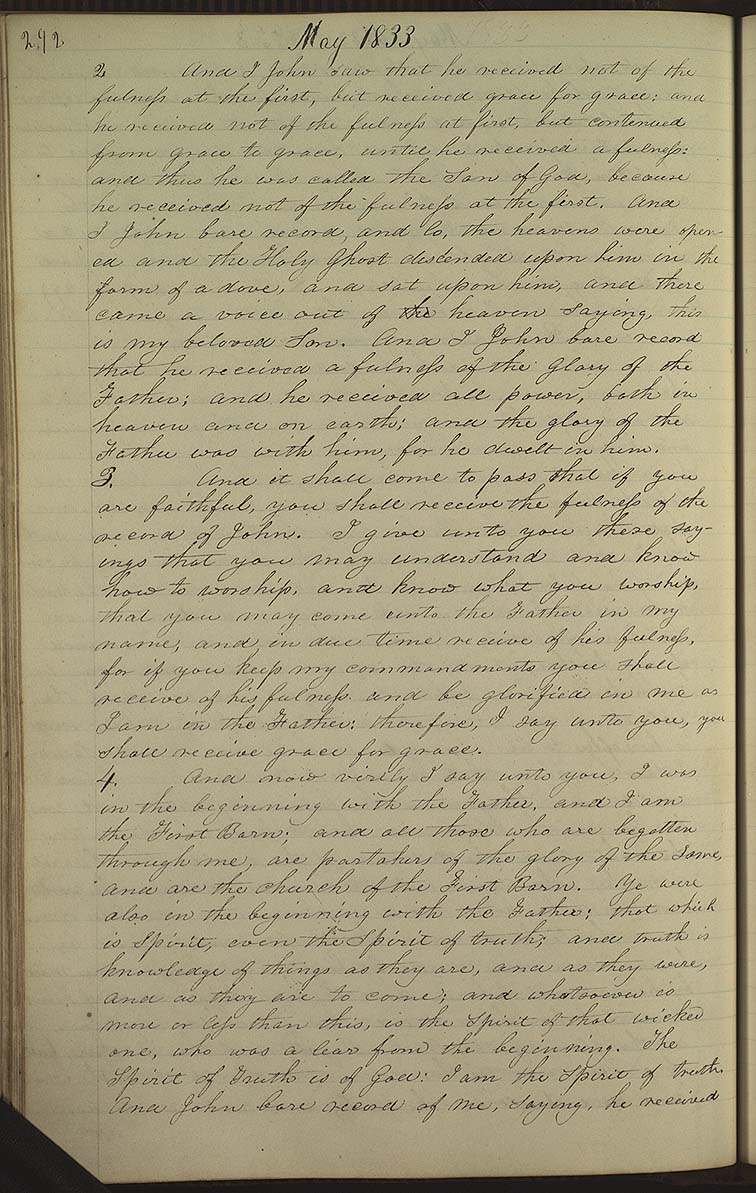 292
May 1833
2 And I John saw that he received not of the
fulness at the first, but received grace for grace: and
he received not of the fulness at first, but contenued
from grace to grace, until he received a fulness:
and thus he was called the Son of God, because
he received not of the fulness at the first. And
I John bare record, and lo, the heavens were open-
ed and the Holy Ghost descended upon him in the
form of a dove, and sat upon him, and there
came a voice out of the heaven saying, this
is my beloved Son. And I John bare record
that he received a fulness of the glory of the
Father; and he received all power, both in
heaven and on earth; and the glory of the
Father was with him, for he dwelt in him.
3. And it shall come to pass that if you
are faithful, you shall receive the fulness of the
record of John. I give unto you these say-
ings that you may understand and know
how to worship, and know what you worship,
that you may come unto the Father in my
name, and in due time receive of his fulness,
for if you keep my commandments you shall
receive of his fulness and be glorified in me as
I am in the Father: therefore, I say unto you, you
shall receive grace for grace.
4. And now virily I say unto you, I was
in the beginning with the Father, and I am
the First Born; and all those who are begotten
through me, are partakers of the glory of the same,
and are the church of the First Born. Ye were
also in the beginning with the Father; that which
is Spirit, even the Spirit of truth; and truth is
knowledge of things as they are, and as they were,
and as they are to come; and whatsoever is
more or less than this, is the Spirit of that wicked
one, who was a liar from the beginning. The
Spirit of Truth is of God: I am the Spirit of truth.
And John bare record of me, saying, he received